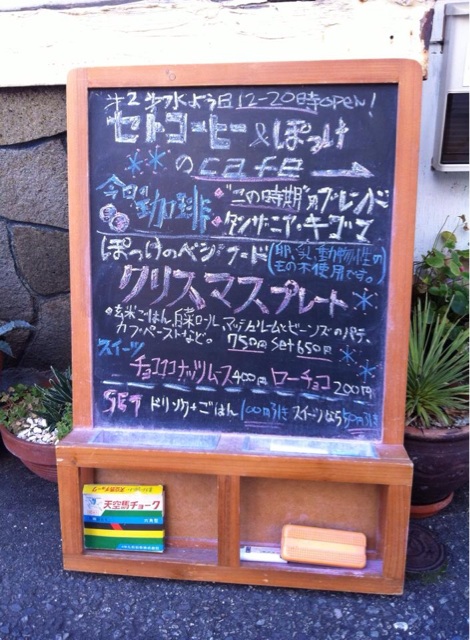 第2 第4 水よう日 12-20時open!
セトコーヒー&ぽっけ
のcafe →
今日の珈琲 "この時期"のブレンド
タンザニア・キゴマ
ぽっけのベジフード(卵、乳、動物性のもの不使用です。)
クリスマスプレート
玄米ごはん 白菜ロール、マッシュルームとビーンズのパテ、
カブペーストなど。 750円 set650円
スイーツ
チョコココナッツムース400円 ローチョコ200円
SET ドリンク+ごはん 100円引き スイーツなら50円引き
天空馬チョーク